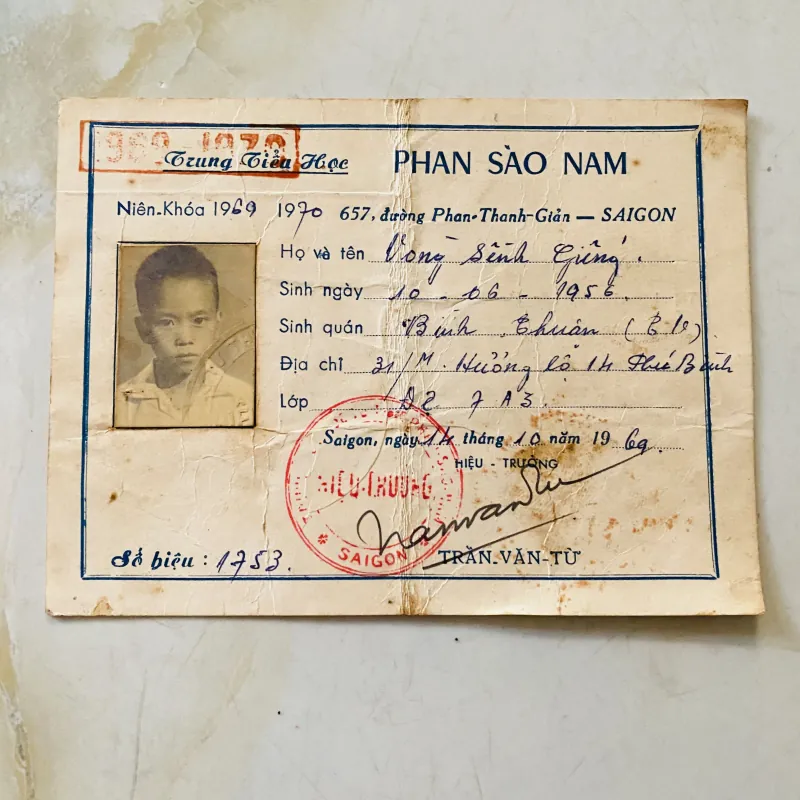 1969-1970
Trung Tiểu Học PHAN SÀO NAM
Niên-Khóa 1969 1970 657, đường Phan-Thanh-Giản — SAIGON
Họ và tên Vong Sênh
Sinh ngày 10 - 06 - 1956.
Sinh quán Bình Thuân
Địa chỉ 31/M. Hương lộ 14 Phú Bình
Lớp Đ2 7 A3.
Saigon, ngày 14 tháng 10 năm 1969.
HIỆU - TRƯỞNG
HIỆU-TRƯỞNG
* SAIGON *
TRẦN-VĂN-TỪ
Số hiệu : 1753.